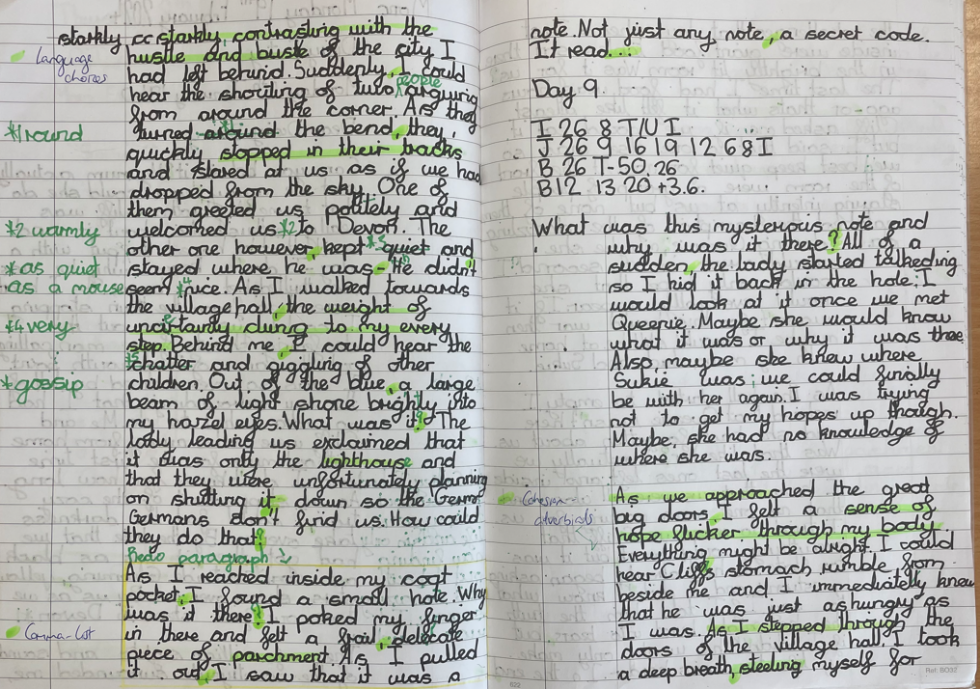 starkly cc starkly, contrasting with the
hustle and bustle of the city I
Language
choices
had left behind. Suddenly, I could
people
hear the shouting of two arguing
from around the corner. As they
*1 round
turned around the bend, they,
quickly stopped in their tracks
and stared at us as if we had
dropped from the sky. One of
them greeted us politely and
*2 warmly
welcomed us *2 to Devon. The
other one however, kept *3 quiet and
*as quiet
as a mouse
stayed where he was - He didn't
seem *4 nice. As I walked towards
the village hall, the weight of
*4 very
uncertainty clung to my every
step. Behind me, I could hear the
*5
chatter and giggling of other
*gossip
children. Out of the blue, a large
beam of light shone brightly into
my hazel eyes. What was it? The
lady leading us exclaimed that
it was only the lighthouse and
that they were unfortunately planning
on shutting it down so the Germ
Germans don't find us. How could
they do that?
Redo paragraph ↓
As I reached inside my coat
pocket, I found a small note. Why
was it there? I poked my finger
Comma-list
in there and felt a frail, delecate
piece of parchment. As I pulled
it out, I saw that it was a
note. Not just any note, a secret code.
It read...
Day 9.
I 26 8 T/U I
J 26 9 16 19 12 6 8 I
B 26 T-50. 26
B12 13 20 +3.6.
What was this mysterious note and
why was it there? All of a
sudden, the lady started talkeding
so I hid it back in the hole. I
would look at it once we met
Queenie. Maybe she would know
what it was or why it was thee
Also, maybe she knew where
Sukie was; we could finially
be with her again. I was trying
not to get my hopes up though.
Maybe, she had no knowledge of
where she was.
Cohesion-
adverbials
As we approached the great
big doors, I felt a sense of
hope flicker through my body
Everything might be alright. I could
hear Cliffs stomach rumble from
beside me and I immediately knew
that he was just as hungry as
I was. As I stepped through the
doors of the village hall, I took
a deep breath, steeling myself for